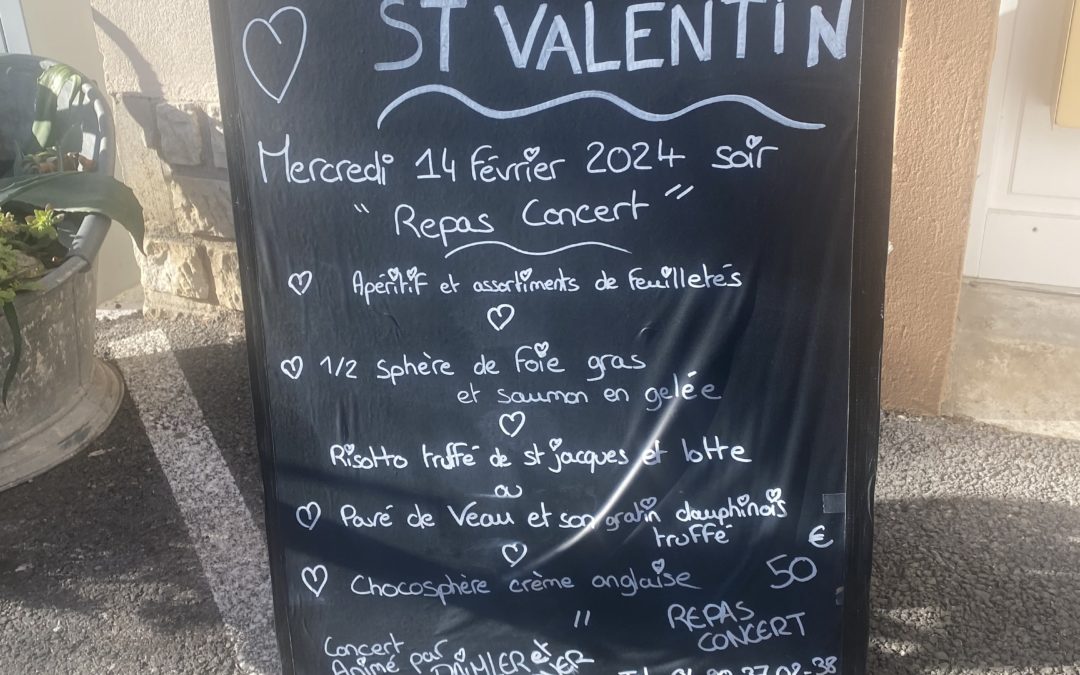 ST VALENTIN
Mercredi 14 Février 2024 soir
"Repas Concert"
Apéritif et assortiments de Feuilletés
1/2 sphère de Foie gras
et saumon en gelée
Risotto truffé de st jacques et lotte
ou
Pavé de Veau et son gratin dauphinois
truffé
€
Chocosphère crème anglaise 50
"
REPAS
CONCERT
Concert
Animé par DAIMLER et